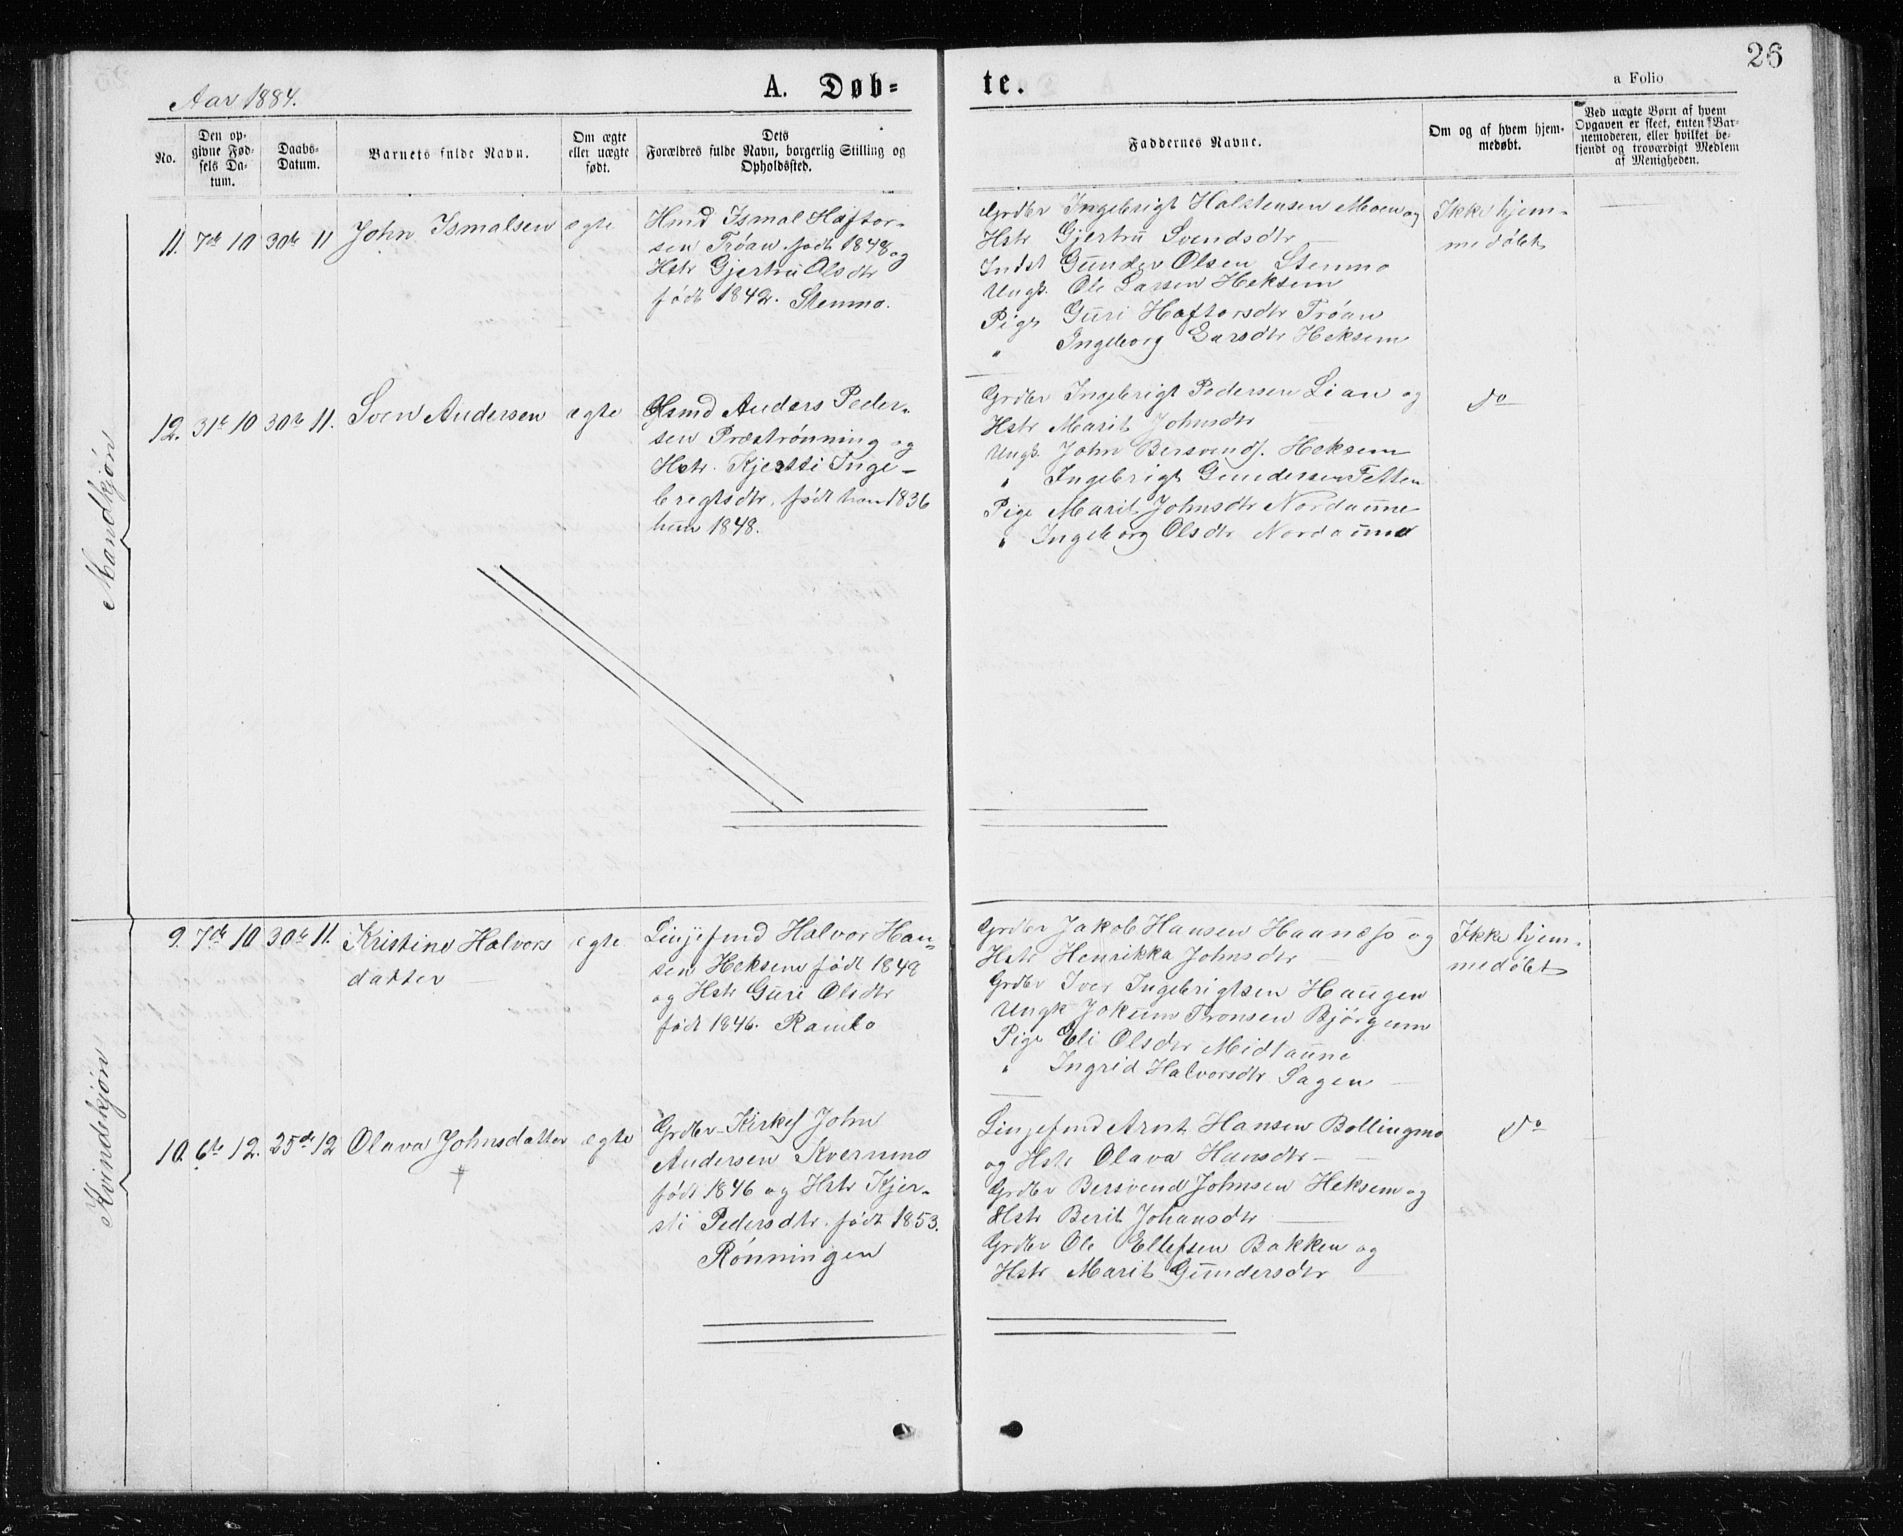 26
Aar 1884.
A. Døb=
te.
a Folio
No.
Den op-
givne Fød-
sels Da-
tum.
Daabs-
Datum.
Barnets fulde Navn.
Om ægte
eller uægte
født.
Dets
Forældres fulde Navn, borgerlig Stilling og
Opholdssted.
Faddernes Navne.
Om og af hvem hjem-
medøbt.
Ved uægte Børn af hvem
Opgaven er skeet, enten Bar-
nemoderen, eller hvilket be-
kjendt og troværdigt Medlem
af Menigheden.
Mandkjøn
11. 7de 10 30te 11 John Ismalsen ægte
Hmd Ismal Haftor-
sen Trøan født 1848 og
Hstr Gjertru Olsdtr
født 1842. Stenmo.
Grdbr Ingebrigt Halstensen Moen og
Hstr Gjertru Svendsdtr
Indst Gunder Olsen Stenmo
Ungk. Ole Larsen Heksem
Pige Guri Haftorsdtr Trøan
" Ingeborg Larsdtr Heksem
Ikke hjem-
medøbt
12. 31te 10 30te 11. Sven Andersen ægte
Hsmd Anders Peder-
sen Præstrønning og
Hstr. Kjersti Inge-
bregtsdtr. født han 1836
hun 1848.
Grdbr Ingebrigt Pedersen Lian og
Hstr Marit Johnsdtr
Ungk. John Bersvends. Heksem
" Ingebrigt Gundersen Tetten
Pige Marit Johnsdtr Nordaune
" Ingeborg Olsdtr Nordaune
do
Kvindekjøn
9. 7de 10 30te 11. Kristine Halvors
datter
ægte
Linjefmd Halvor Han-
sen Heksem født 1849
og Hstr Guri Olsdtr
født 1846. Ramlo
Grdbr Jakob Hansen Haanæss og
Hstr Henrikka Johnsdtr
Grdbr Iver Ingebrigtsen Haugen
Ungk Jokum Tronsen Bjørgum
Pige Eli Olsdtr Midtaune
" Ingrid Halvorsdtr Sagen
Ikke hjem-
medøbt
10. 6te 12. 25de 12 Olava Johnsdatter ægte
Grdbr Kirkes John
Andersen Kvernmo
født 1846 og Hstr Kjer-
sti Pedersdtr. født 1853.
Rønningen
Linjefmd Arnt Hansen Bollingmo
og Hstr Olava Hansdtr
Grdbr Bersvend Johnsen Heksem og
Hstr Berit Johansdtr
Grdbr Ole Ellefsen Bakken og
Hstr Marit Gundersdtr
do